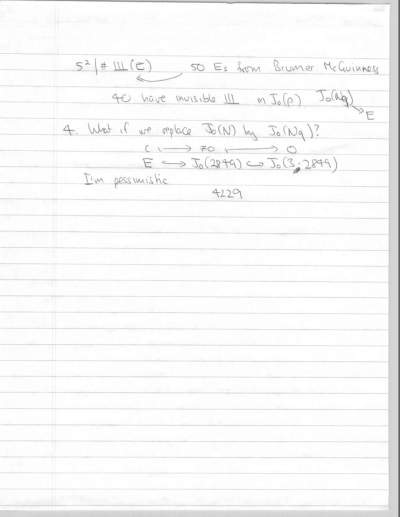 5² | # Ш(E) 50 Es from Brumer McGuinness
40 have invisible Ш in J₀(p) J₀(Nq)
E
4. What if we replace J₀(N) by J₀(Nq)?
C ↦ ≠0 ↦ 0
E ↪ J₀(2849) ↪ J₀(3·2849)
I'm pessimistic
4229